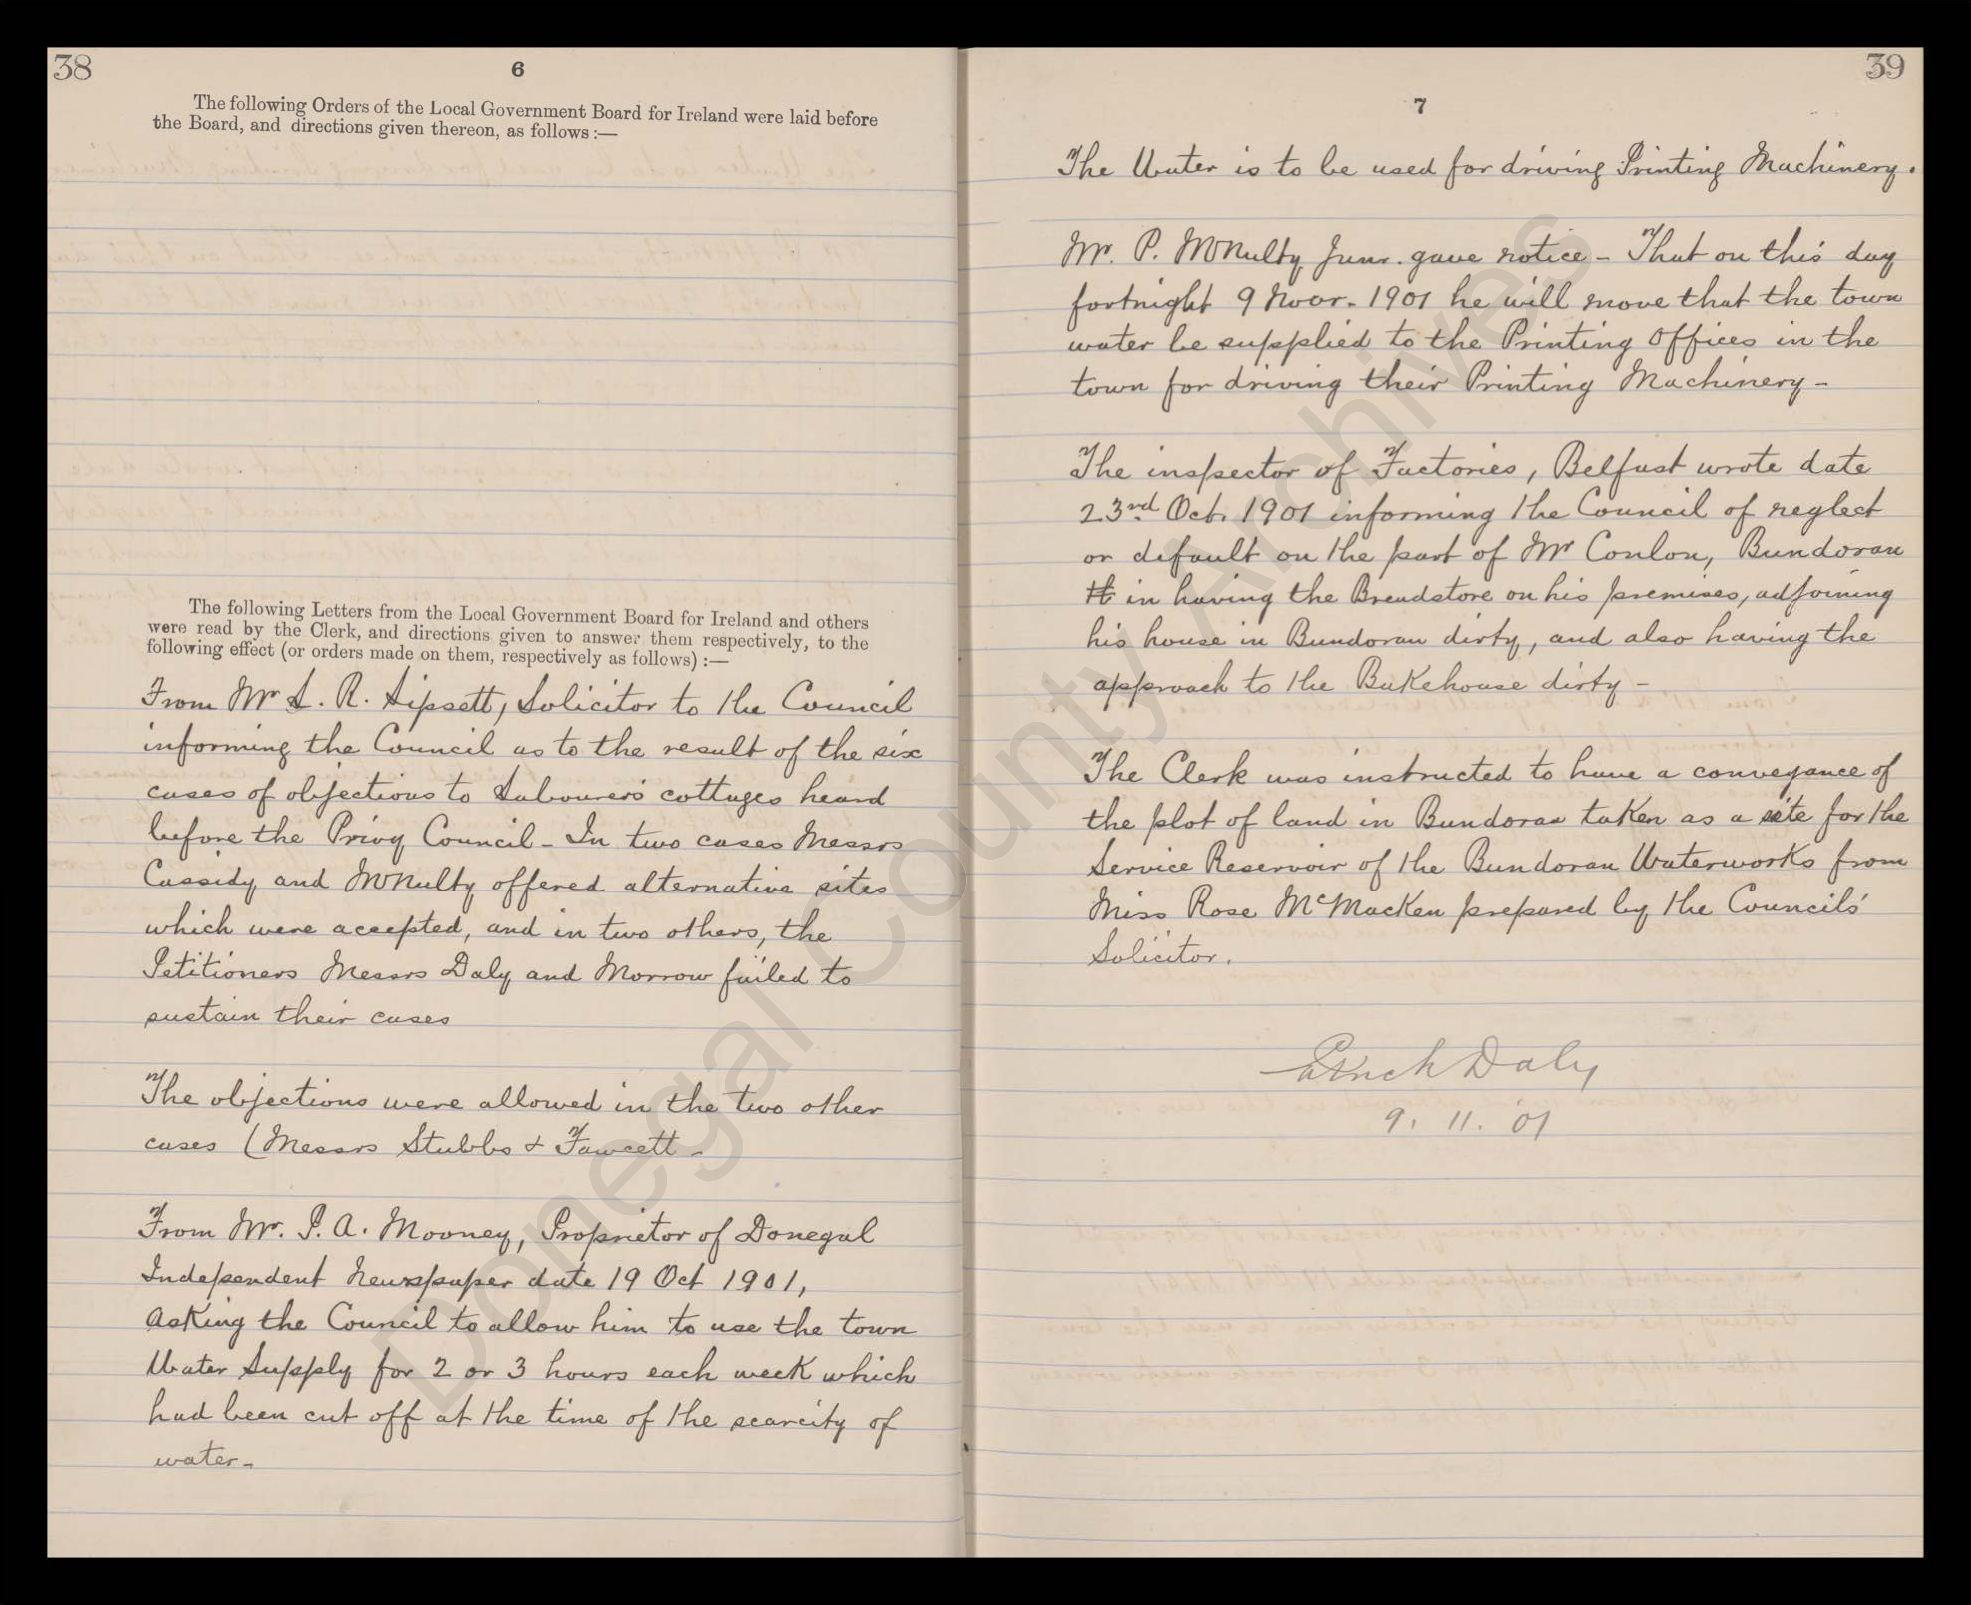 38
6
The following Orders of the Local Government Board for Ireland were laid before
the Board, and directions given thereon, as follows :—
The following Letters from the Local Government Board for Ireland and others
were read by the Clerk, and directions given to answer them respectively, to the
following effect (or orders made on them, respectively as follows) :—
From Mr L. R. Lipsett, Solicitor to the Council
informing the Council as to the result of the six
cases of objections to Labourers cottages heard
before the Privy Council - In two cases Messrs
Cassidy and McNulty offered alternative sites
which were accepted, and in two others, the
Petitioners Messrs Daly and Morrow failed to
sustain their cases
The objections were allowed in the two other
cases (Messrs Stubbs & Fawcett -
From Mr. P. A. Mooney, Proprietor of Donegal
Independent Newspaper date 19 Oct 1901,
asking the Council to allow him to use the town
Water Supply for 2 or 3 hours each week which
had been cut off at the time of the scarcity of
water -
39
7
The Water is to be used for driving Printing Machinery.
Mr. P. McNulty Junr. gave notice - That on this day
fortnight 9 Novr. 1901 he will move that the town
water be supplied to the Printing Offices in the
town for driving their Printing Machinery -
The inspector of Factories, Belfast wrote date
23rd Oct. 1901 informing the Council of neglect
or default on the part of Mr Conlon, Bundoran
in having the Breadstore on his premises, adjoining
his house in Bundoran dirty, and also having the
approach to the Bakehouse dirty -
The Clerk was instructed to have a conveyance of
the plot of land in Bundoran taken as a site for the
Service Reservoir of the Bundoran Waterworks from
Miss Rose McMacken prepared by the Councils'
Solicitor.
Daly
9. 11. '01
Donegal County Archives